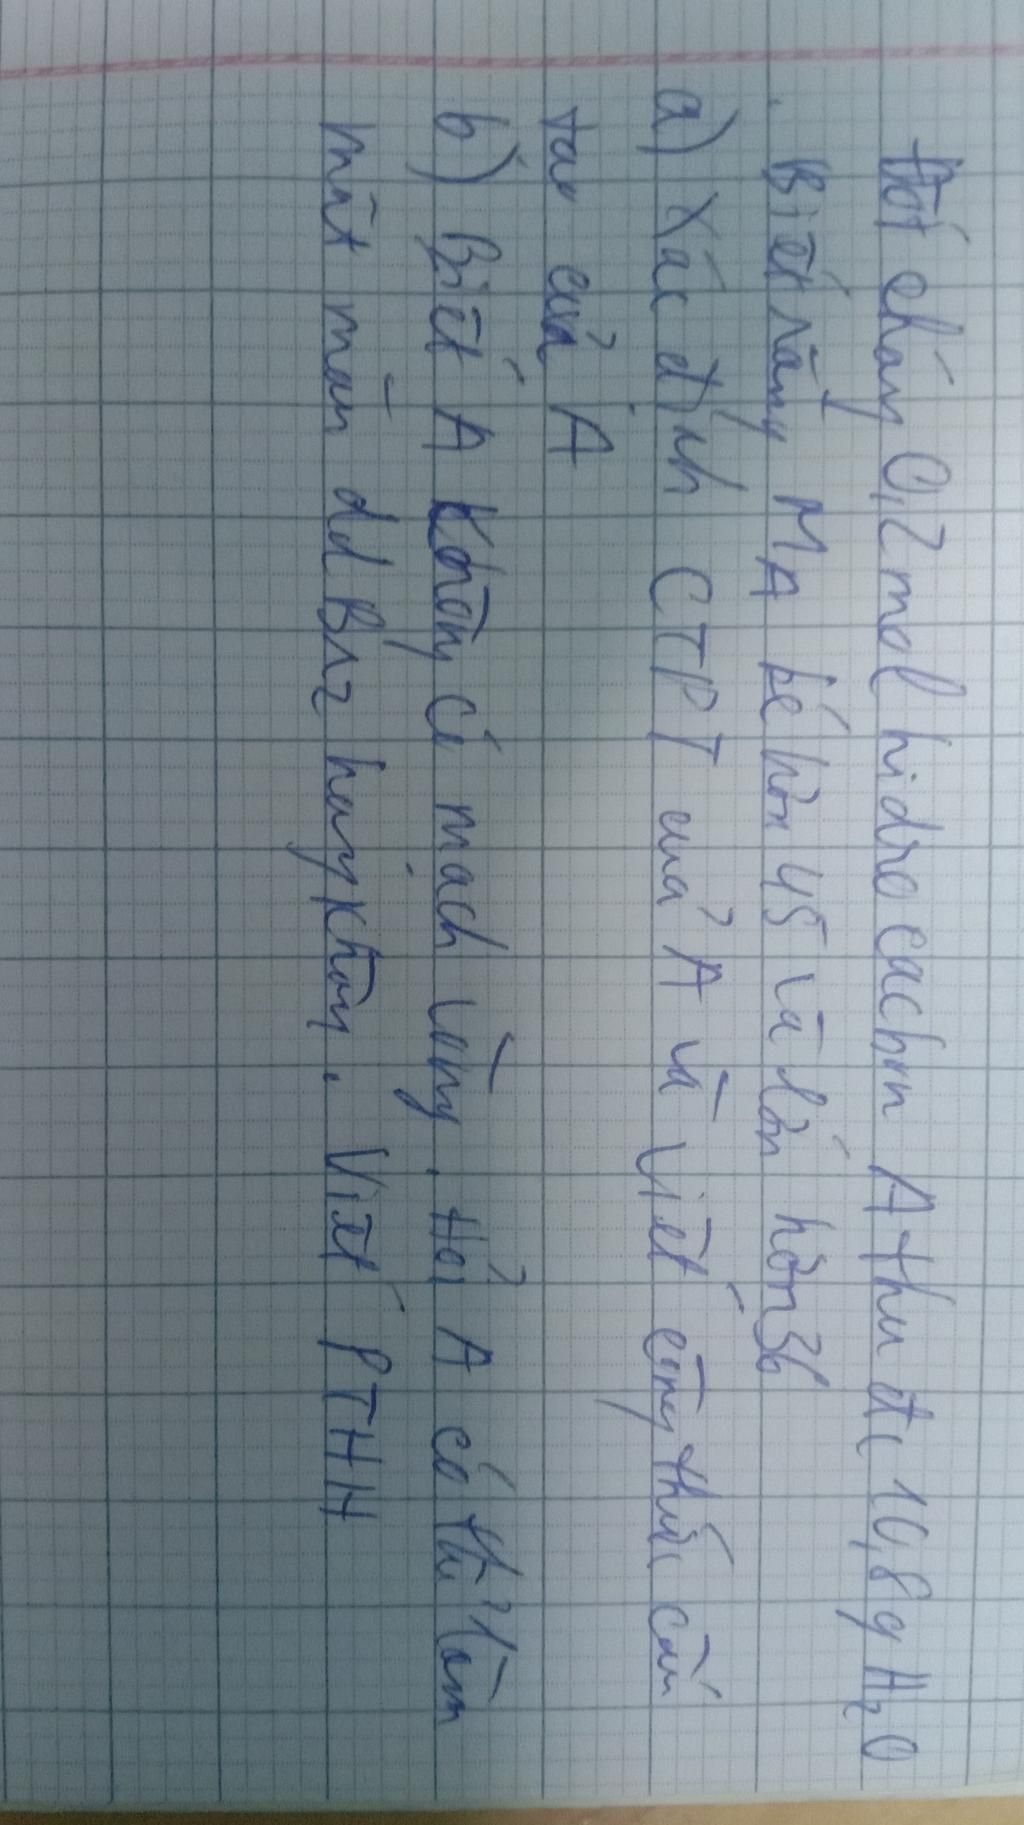 Đốt cháy 0,2 mol hidrocacbon A thu đc 10,8g H2O
. Biết rằng MA bé hơn 45 và lớn hơn 36
a) Xác định CTPT của A và viết công thức cấu
tạo của A
b) Biết A không có mạch vòng. Hỏi A có thể làm
mất màu dd Br2 hay không. Viết PTHH